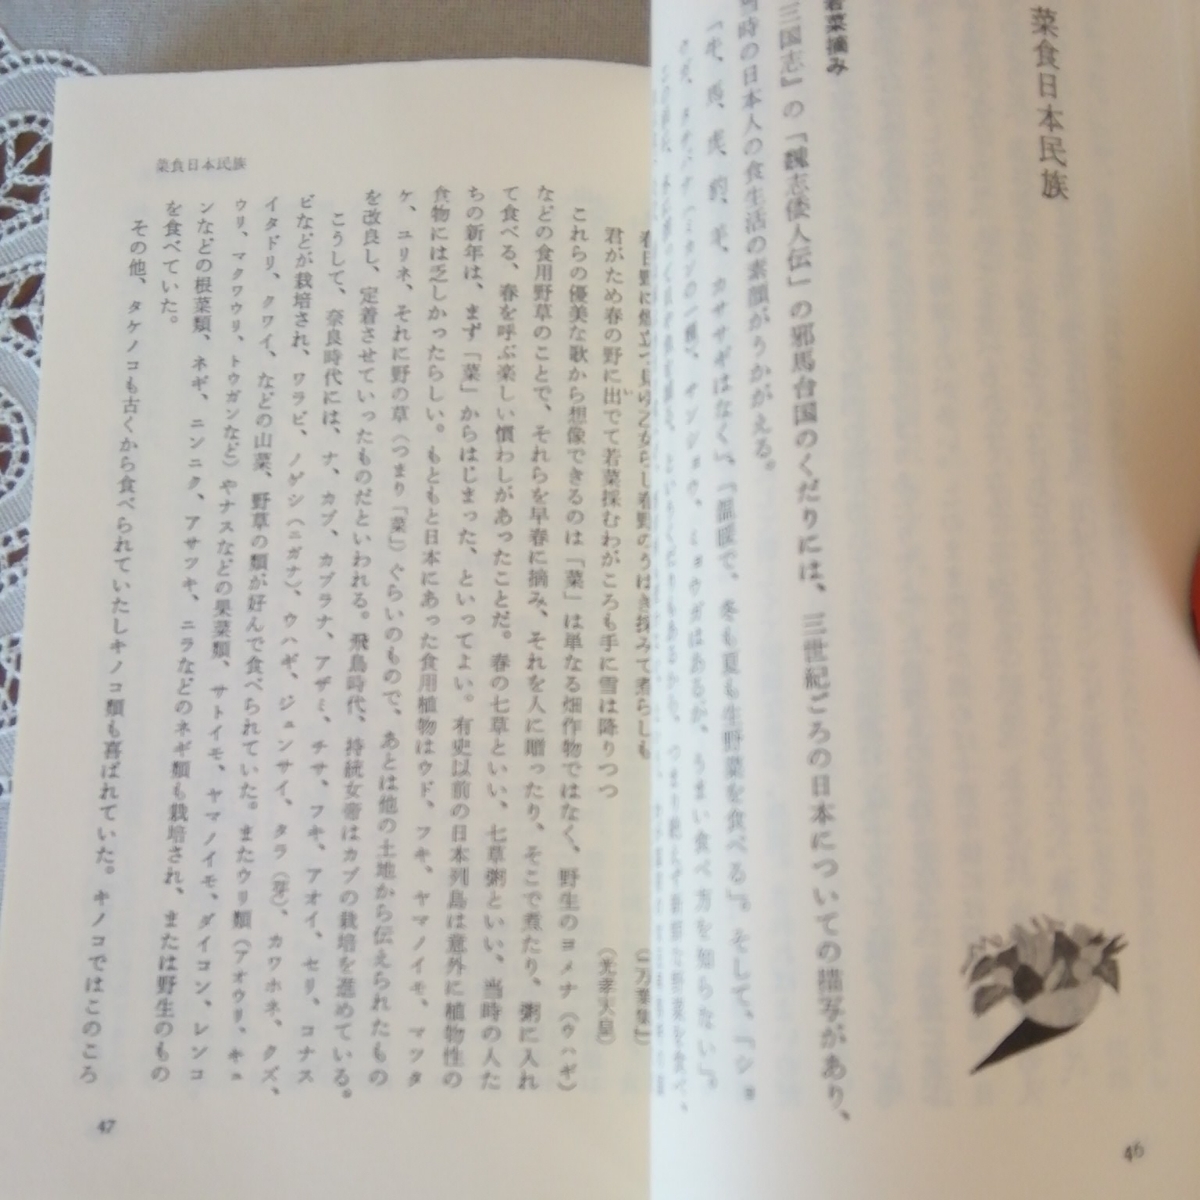 菜食日本民族
若菜摘み
三国志』の「魏志倭人伝」の邪馬台国のくだりには、三世紀ごろの日本についての描写があり、
時の日本人の食生活の素顔がうかがえる。
「牛、馬、虎、豹、羊、カササギはなく」、「温暖で、冬も夏も生野菜を食べる」。そして、「ショ
ウガ、タチバナ(ミカンの一種)、サンショウ、ミョウガはあるが、うまい食べ方を知らない」。
46
菜食日本民族
春日野に煙立つ見ゆ乙女らし春野のうはぎ採みて煮らしも
君がため春の野に出でて若菜採むわがころも手に雪は降りつつ
(光孝天皇)
これらの優美な歌から想像できるのは「菜」は単なる畑作物ではなく、野生のヨメナ(ウハギ)
などの食用野草のことで、それらを早春に摘み、それを人に贈ったり、そこで煮たり、粥に入れ
て食べる、春を呼ぶ楽しい慣わしがあったことだ。春の七草といい、七草粥といい、当時の人た
ちの新年は、まず「菜」からはじまった、といってよい。有史以前の日本列島は意外に植物性の
食物には乏しかったらしい。もともと日本にあった食用植物はウド、フキ、ヤマノイモ、マツタ
ケ、ユリネ、それに野の草(つまり「菜」)ぐらいのもので、あとは他の土地から伝えられたもの
を改良し、定着させていったものだといわれる。飛鳥時代、持統女帝はカブの栽培を進めている。
こうして、奈良時代には、ナ、カブ、カブラナ、アザミ、チサ、フキ、アオイ、セリ、コナス
ビなどが栽培され、ワラビ、ノゲシ(ニガナ)、ウハギ、ジュンサイ、タラ(芽)、カワホネ、クズ、
イタドリ、クワイ、などの山菜、野草の類が好んで食べられていた。またウリ類(アオウリ、キュ
ウリ、マクワウリ、トウガンなど)やナスなどの果菜類、サトイモ、ヤマノイモ、ダイコン、レンコ
ンなどの根菜類、ネギ、ニンニク、アサツキ、ニラなどのネギ類も栽培され、または野生のもの
を食べていた。
その他、タケノコも古くから食べられていたしキノコ類も喜ばれていた。キノコではこのころ
47